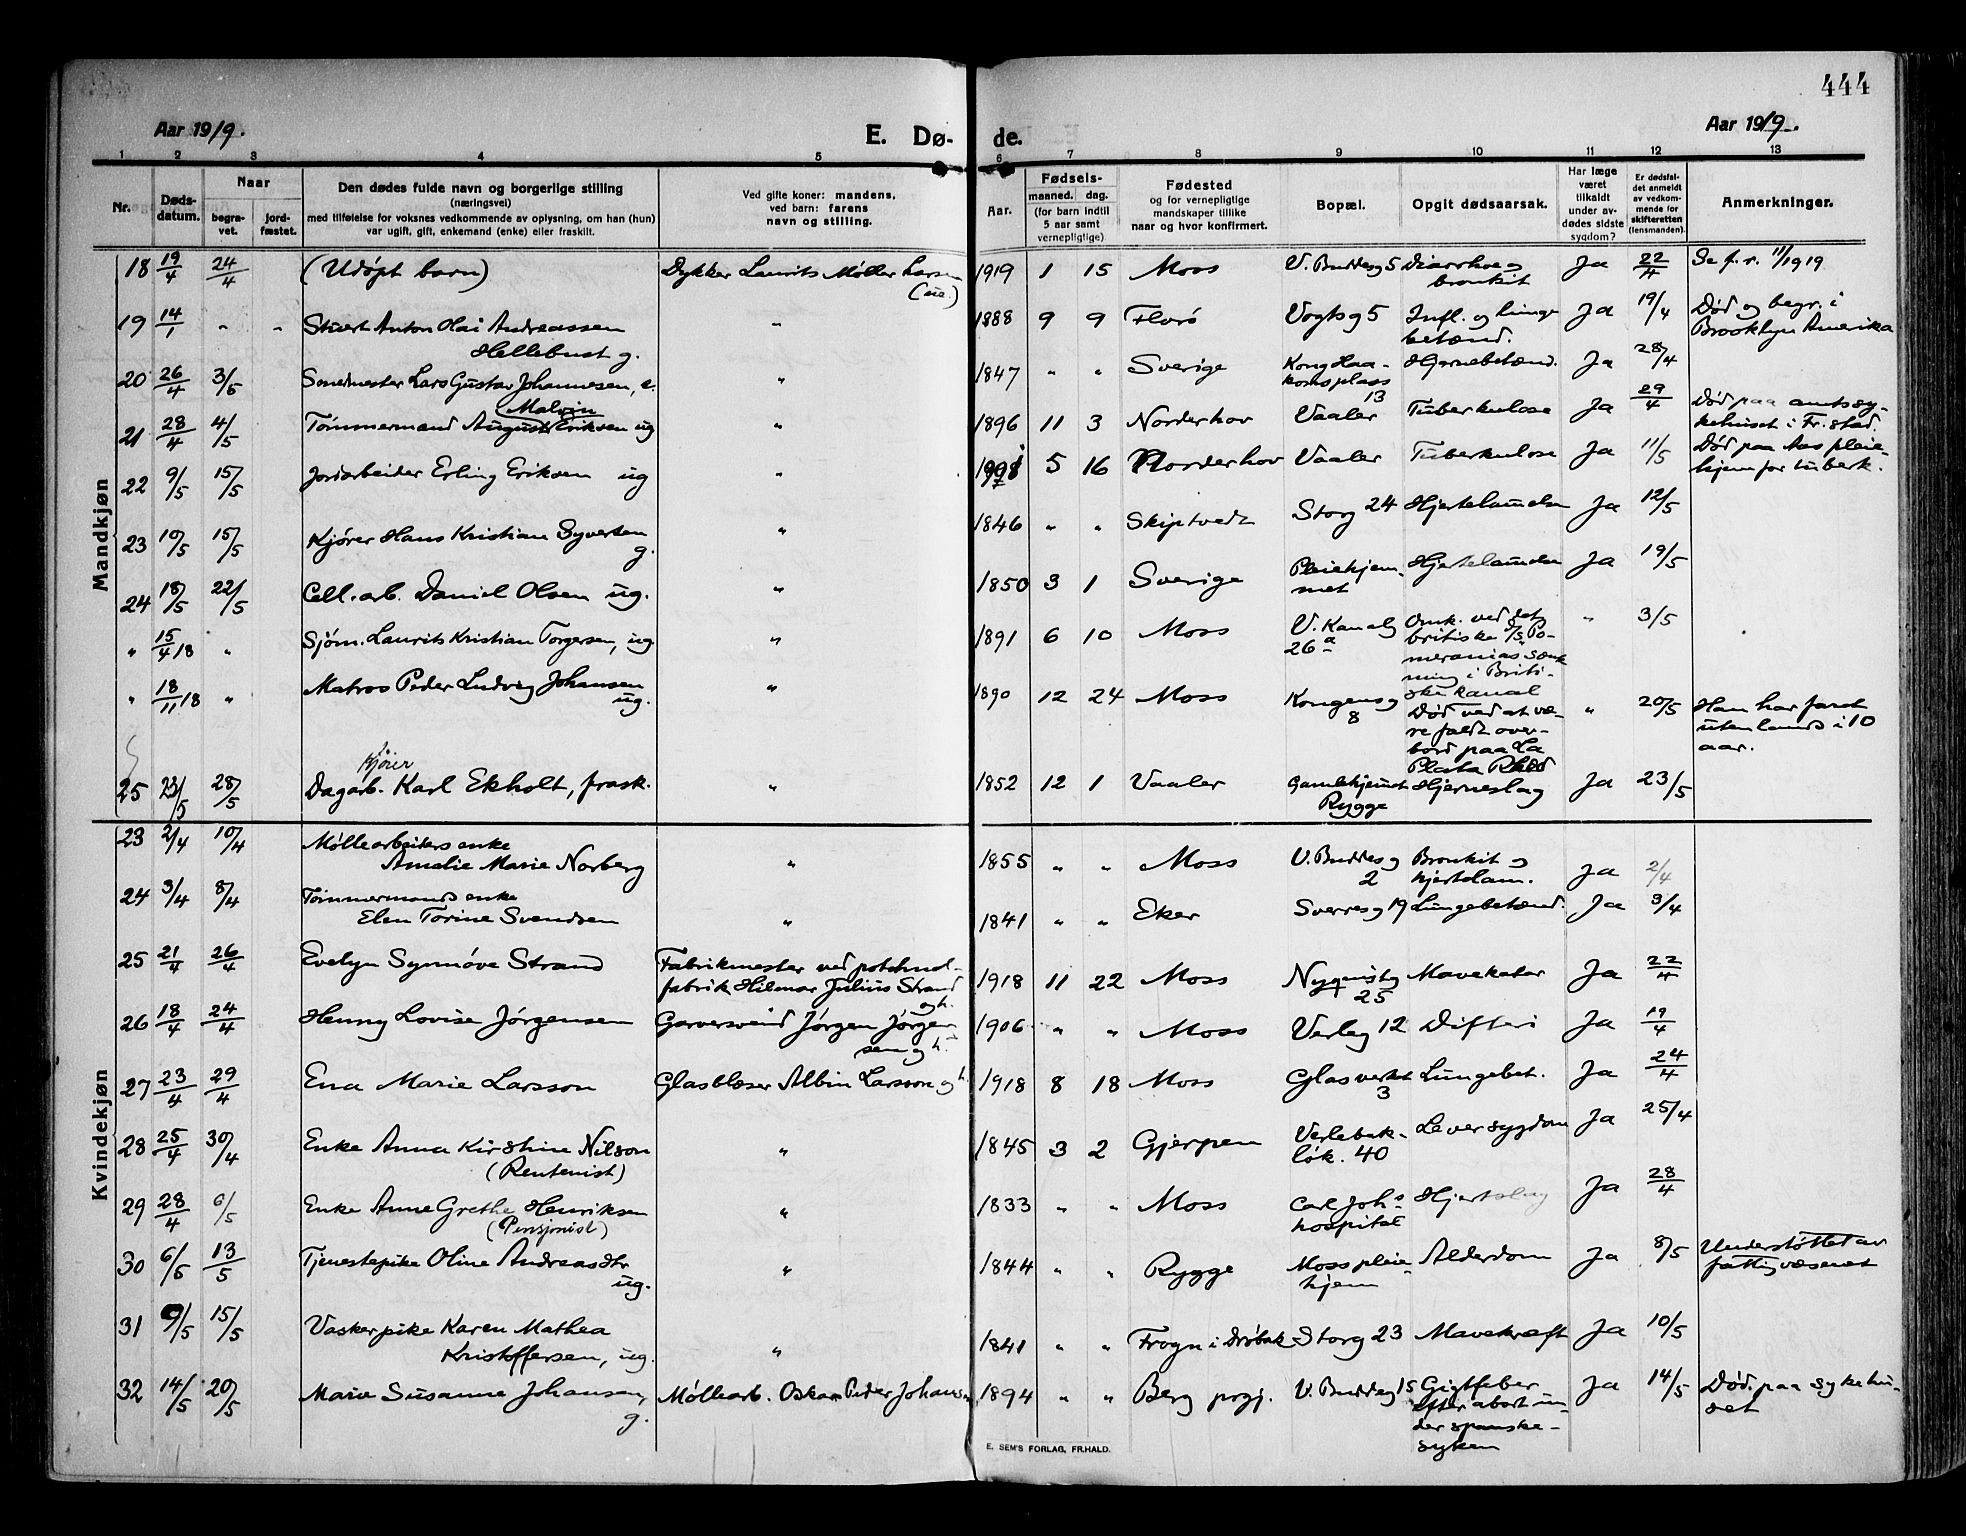 444
Aar 1919.
E. Dø-
de.
Aar 1919.
1 2 3 4 5 6 7 8 9 10 11 12 13
Nr.
Døds-
datum.
Naar
begra-
vet.
jord-
fæstet.
Den dødes fulde navn og borgerlige stilling
(næringsvei)
med tilføielse for voksnes vedkommende av oplysning, om han (hun)
var ugift, gift, enkemand (enke) eller fraskilt.
Ved gifte koner: mandens,
ved barn: farens
navn og stilling.
Aar.
Fødsels-
maaned. dag.
(for barn indtil
5 aar samt
vernepligtige)
Fødested
og for vernepligtige
mandskaper tillike
naar og hvor konfirmert.
Bopæl.
Opgit dødsaarsak.
Har læge
været
tilkaldt
under av-
dødes sidste
sygdom?
Er dødsfal-
det anmeldt
av vedkom-
mende for
skifteretten
(lensmanden).
Anmerkninger.
Mandkjøn
18 19/4 24/4 (Udøpt barn) Dykker Laurits Møller Larsen 1919 1 15 Moss V. Buddesg 5 Diarrhoe og Ja 22/4 Se f. r. 11/1919
(ue.) bronkit
19 14/1 " " Stuert Anton Olai Andreassen " 1888 9 9 Florø Vogtsg 5 Infl. og lunge Ja 19/4 Død og begr. i
Hellebust g. betænd. Brooklyn Amerika
20 26/4 3/5 Lars Gustav Johannesen, e. " 1847 " " Sverige Kong Haa- Hjernebetænd. Ja 28/4
konsplass
13
Malvin
21 28/4 4/5 Tømmermand August Eriksen ug " 1896 11 3 Norderhov Vaaler Tuberkulose Ja 29/4 Død paa amtssy-
kehuset i Fr.stad.
22 9/5 15/5 Jordarbeider Erling Eriksen ug " 5 16 Norderhov Vaaler Tuberkulose Ja 11/5 Død paa Aas pleie-
hjem for tuberk.
23 10/5 15/5 Kjører Hans Kristian Syversen " 1846 " " Skiptvedt Storg 24 Hjertelamelse Ja 12/5
g.
24 18/5 22/5 Cell. arb. Daniel Olsen ug. " 1850 3 1 Sverige Pleiehjem- Hjertelamelse Ja 19/5
met
" 15/4 18 " Sjøm. Laurits Kristian Torgersen, ug " 1891 6 10 Moss V. Kanalg Omk. ved det " 3/5
26 a britiske D/S Po-
meranias sænk
ning i Briti-
" 18/11 18 " Matros Peder Ludvig Johansen " 1890 12 24 Moss Kongensg ske kanal " 20/5 Han har faret
ug. 8 Død ved at væ- utenlands i 10
re faldt over- aar.
bord paa La
Plata Rhed
Kjører
25 23/5 28/5 Dagarb. Karl Ekholt, frask. " 1852 12 1 Vaaler Gamlehjemmet Hjerneslag Ja 23/5
Rygge
Kvindekjøn
23 2/4 10/4 Møllearbeiders enke
Amalie Marie Norberg " 1855 " " Moss V. Buddesg Bronkit og Ja 2/4
2 hjertelam.
24 3/4 8/4 Tømmermands enke
Elen Torine Svendsen " 1841 " " Eker Sverresg 19 Lungebetænd. Ja 3/4
25 21/4 26/4 Evelyn Synnøve Strand Fabrikmester ved
fabrik Hilmar Julius Strand 1918 11 22 Moss 25 Mavekatar Ja 22/4
og h.
26 18/4 24/4 Henny Lovise Jørgensen Garversvend Jørgen Jørgen- 1906 " " Moss Verleg 12 Difteri Ja 19/4
sen og h.
27 23/4 29/4 Ena Marie Larsson Glasblæser Albin Larsson og h. 1918 8 18 Moss Glasverket Lungebet. Ja 24/4
3
28 25/4 30/4 Enke Anna Kirstine Nilson " 1845 3 2 Gjerpen Verlebak- Leversygdom Ja 25/4
(Rentenist) løk. 40
29 28/4 6/5 Enke Anne Grethe Henriksen " 1833 " " Moss Carl Joh.s Hjerteslag Ja 28/4
(Pensjonist) hospital
30 6/5 13/5 Tjenestepike Oline Andreasdtr " 1844 " " Rygge Moss pleie- Alderdom Ja 8/5 Understøttet av
ug. hjem fattigvæsenet
31 9/5 15/5 Vaskerpike Karen Mathea
Kristoffersen, ug. " 1841 " " Frogn i Drøbak Storg 23 Mavekræft Ja 10/5
32 14/5 20/5 Marie Susanne Johansen, Møllearb. Oskar Peder Johansen 1894 " " Berg prgj. V. Buddeg 15 Gigtfeber Ja 14/5 Død paa sykehu-
g. efter abort un- set
der spanske-
syken
E. SEM'S FORLAG, FR.HALD.